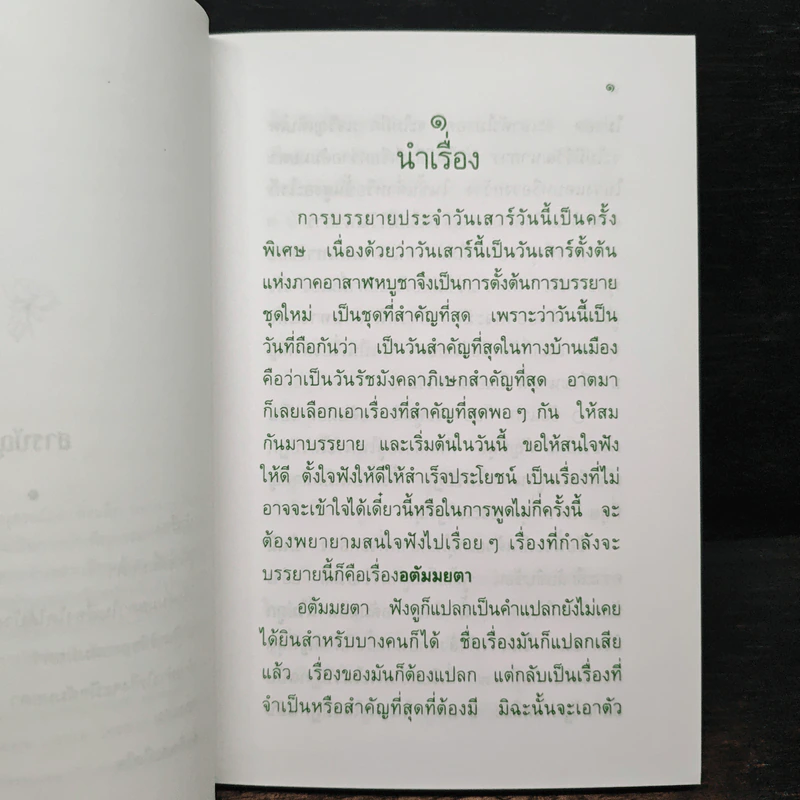 ๑
๑
นำเรื่อง
การบรรยายประจำวันเสาร์วันนี้เป็นครั้ง
พิเศษ เนื่องด้วยว่าวันเสาร์นี้เป็นวันเสาร์ตั้งต้น
แห่งภาคอาสาฬหบูชาจึงเป็นการตั้งต้นการบรรยาย
ชุดใหม่ เป็นชุดที่สำคัญที่สุด เพราะว่าวันนี้เป็น
วันที่ถือกันว่า เป็นวันสำคัญที่สุดในทางบ้านเมือง
คือว่าเป็นวันรัชมังคลาภิเษกสำคัญที่สุด อาตมา
ก็เลยเลือกเอาเรื่องที่สำคัญที่สุดพอ ๆ กัน ให้สม
กันมาบรรยาย และเริ่มต้นในวันนี้ ขอให้สนใจฟัง
ให้ดี ตั้งใจฟังให้ดีให้สำเร็จประโยชน์ เป็นเรื่องที่ไม่
อาจจะเข้าใจได้เดี๋ยวนี้หรือในการพูดไม่กี่ครั้งนี้ จะ
ต้องพยายามสนใจฟังไปเรื่อย ๆ เรื่องที่กำลังจะ
บรรยายนี้ก็คือเรื่องอตัมมยตา
อตัมมยตา ฟังดูก็แปลกเป็นคำแปลกยังไม่เคย
ได้ยินสำหรับบางคนก็ได้ ชื่อเรื่องมันก็แปลกเสีย
แล้ว เรื่องของมันก็ต้องแปลก แต่กลับเป็นเรื่องที่
จำเป็นหรือสำคัญที่สุดที่ต้องมี มิฉะนั้นจะเอาตัว